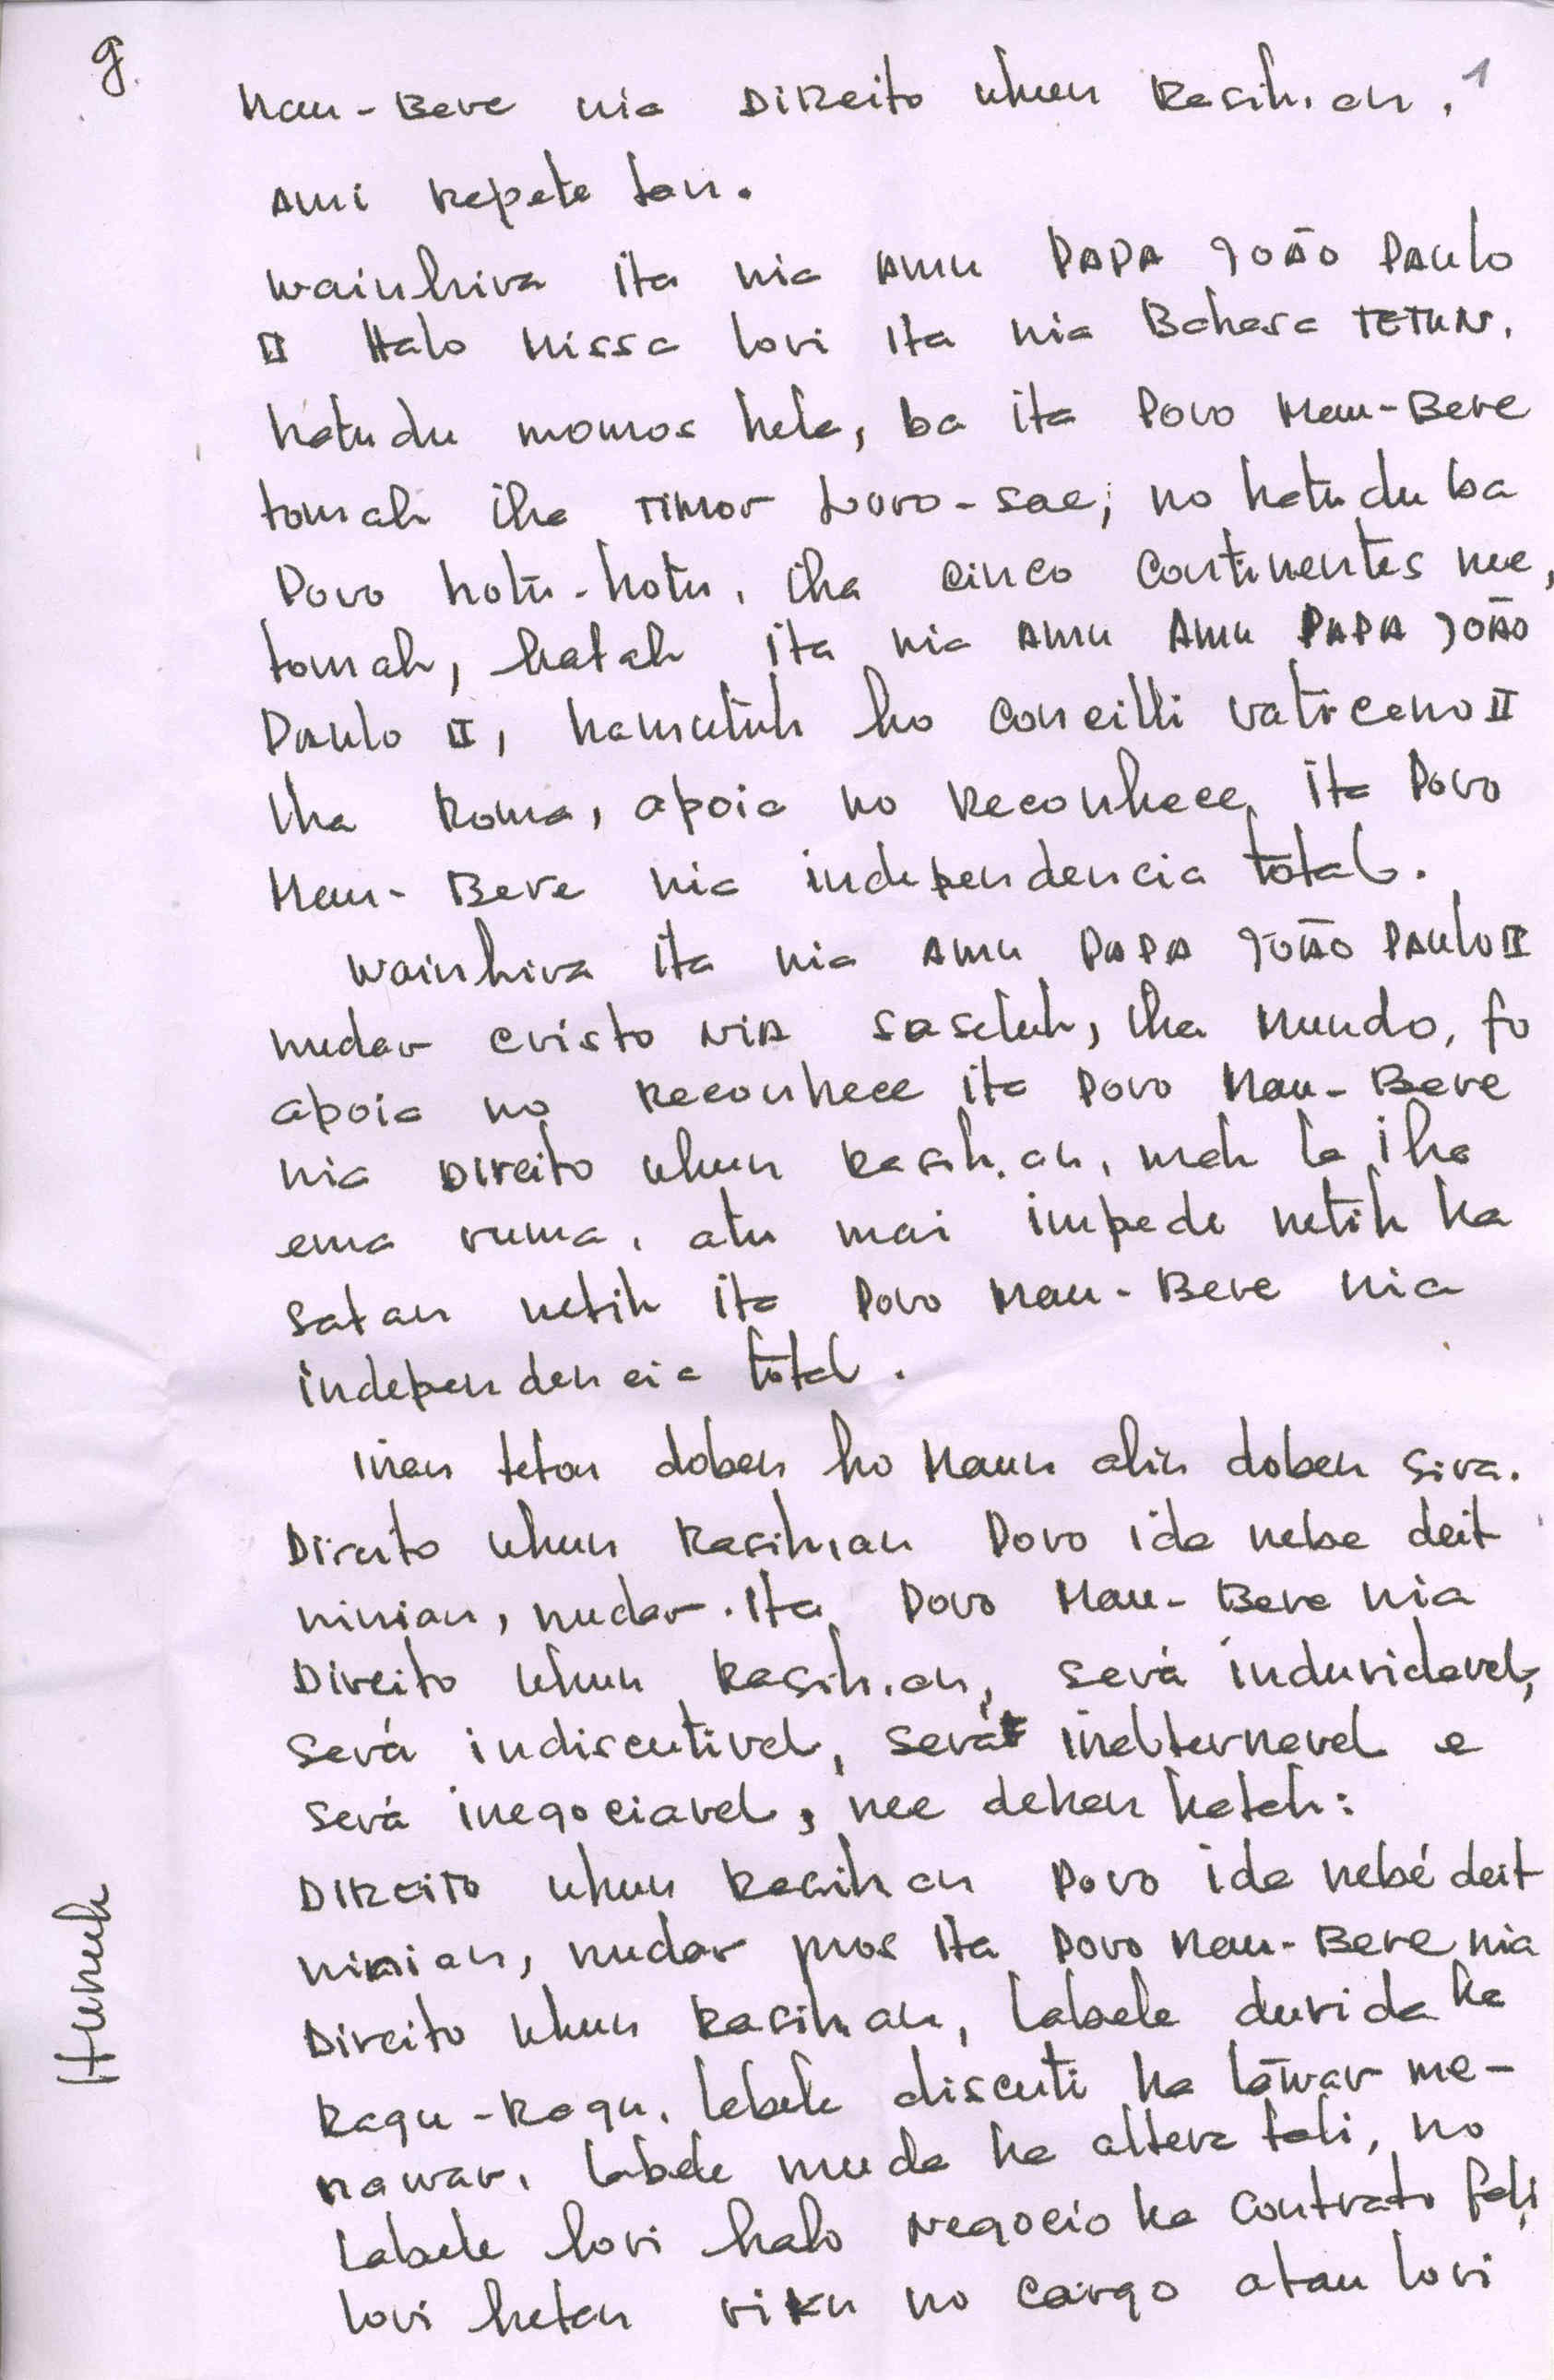 g.
1
Mau-Bere nia Direito ukun Rasik.an.
Ami Repete tan.
wainhira ita nia Amu PAPA JOÃO PAulo
II Halo Missa lori ita nia Bahasa TETUN.
hatudu momos hela, ba ita Povo Mau-Bere
tomak iha Timor Loro-sae; no hatudu ba
Povo hotu-hotu, iha cinco continentes nee,
tomak, katak ita nia Amu Amu PAPA JOÃO
PAulo II, hamutuk ho Concilli Vaticano II
iha Roma, apoia no Reconhece, ita Povo
Mau-Bere nia independencia total.
wainhira ita nia Amu PAPA JOÃO PAulo II
nudar Cristo NiA saseluk, iha Mundo, fo
apoia no Reconhece ita Povo Mau-Bere
nia Direito ukun Rasik.an, mak la iha
ema ruma, atu mai impede netik ka
satan netik ita Povo Mau-Bere nia
independencia total.
inan feton doben ho Maun alin doben sira.
Direito ukun Rasikian Povo ida nebe deit
ninian, nudar. ita Povo Mau-Bere nia
Direito ukun Rasik.an, será induvidavel,
será indiscutivel, será inalternavel e
será inegociavel, nee dehan katak:
DIREITO ukun Rasikan Povo ida nebé deit
ninian, nudar mos ita Povo Mau-Bere nia
Direito ukun Rasikan, labele duvida ka
Ragu-Ragu. labele discuti ka tawar me-
nawar. labele muda ka altera fali, no
labele lori halo Negocio ka Contrato fali
lori hetan riku no Cargo atau lori
Hunuk